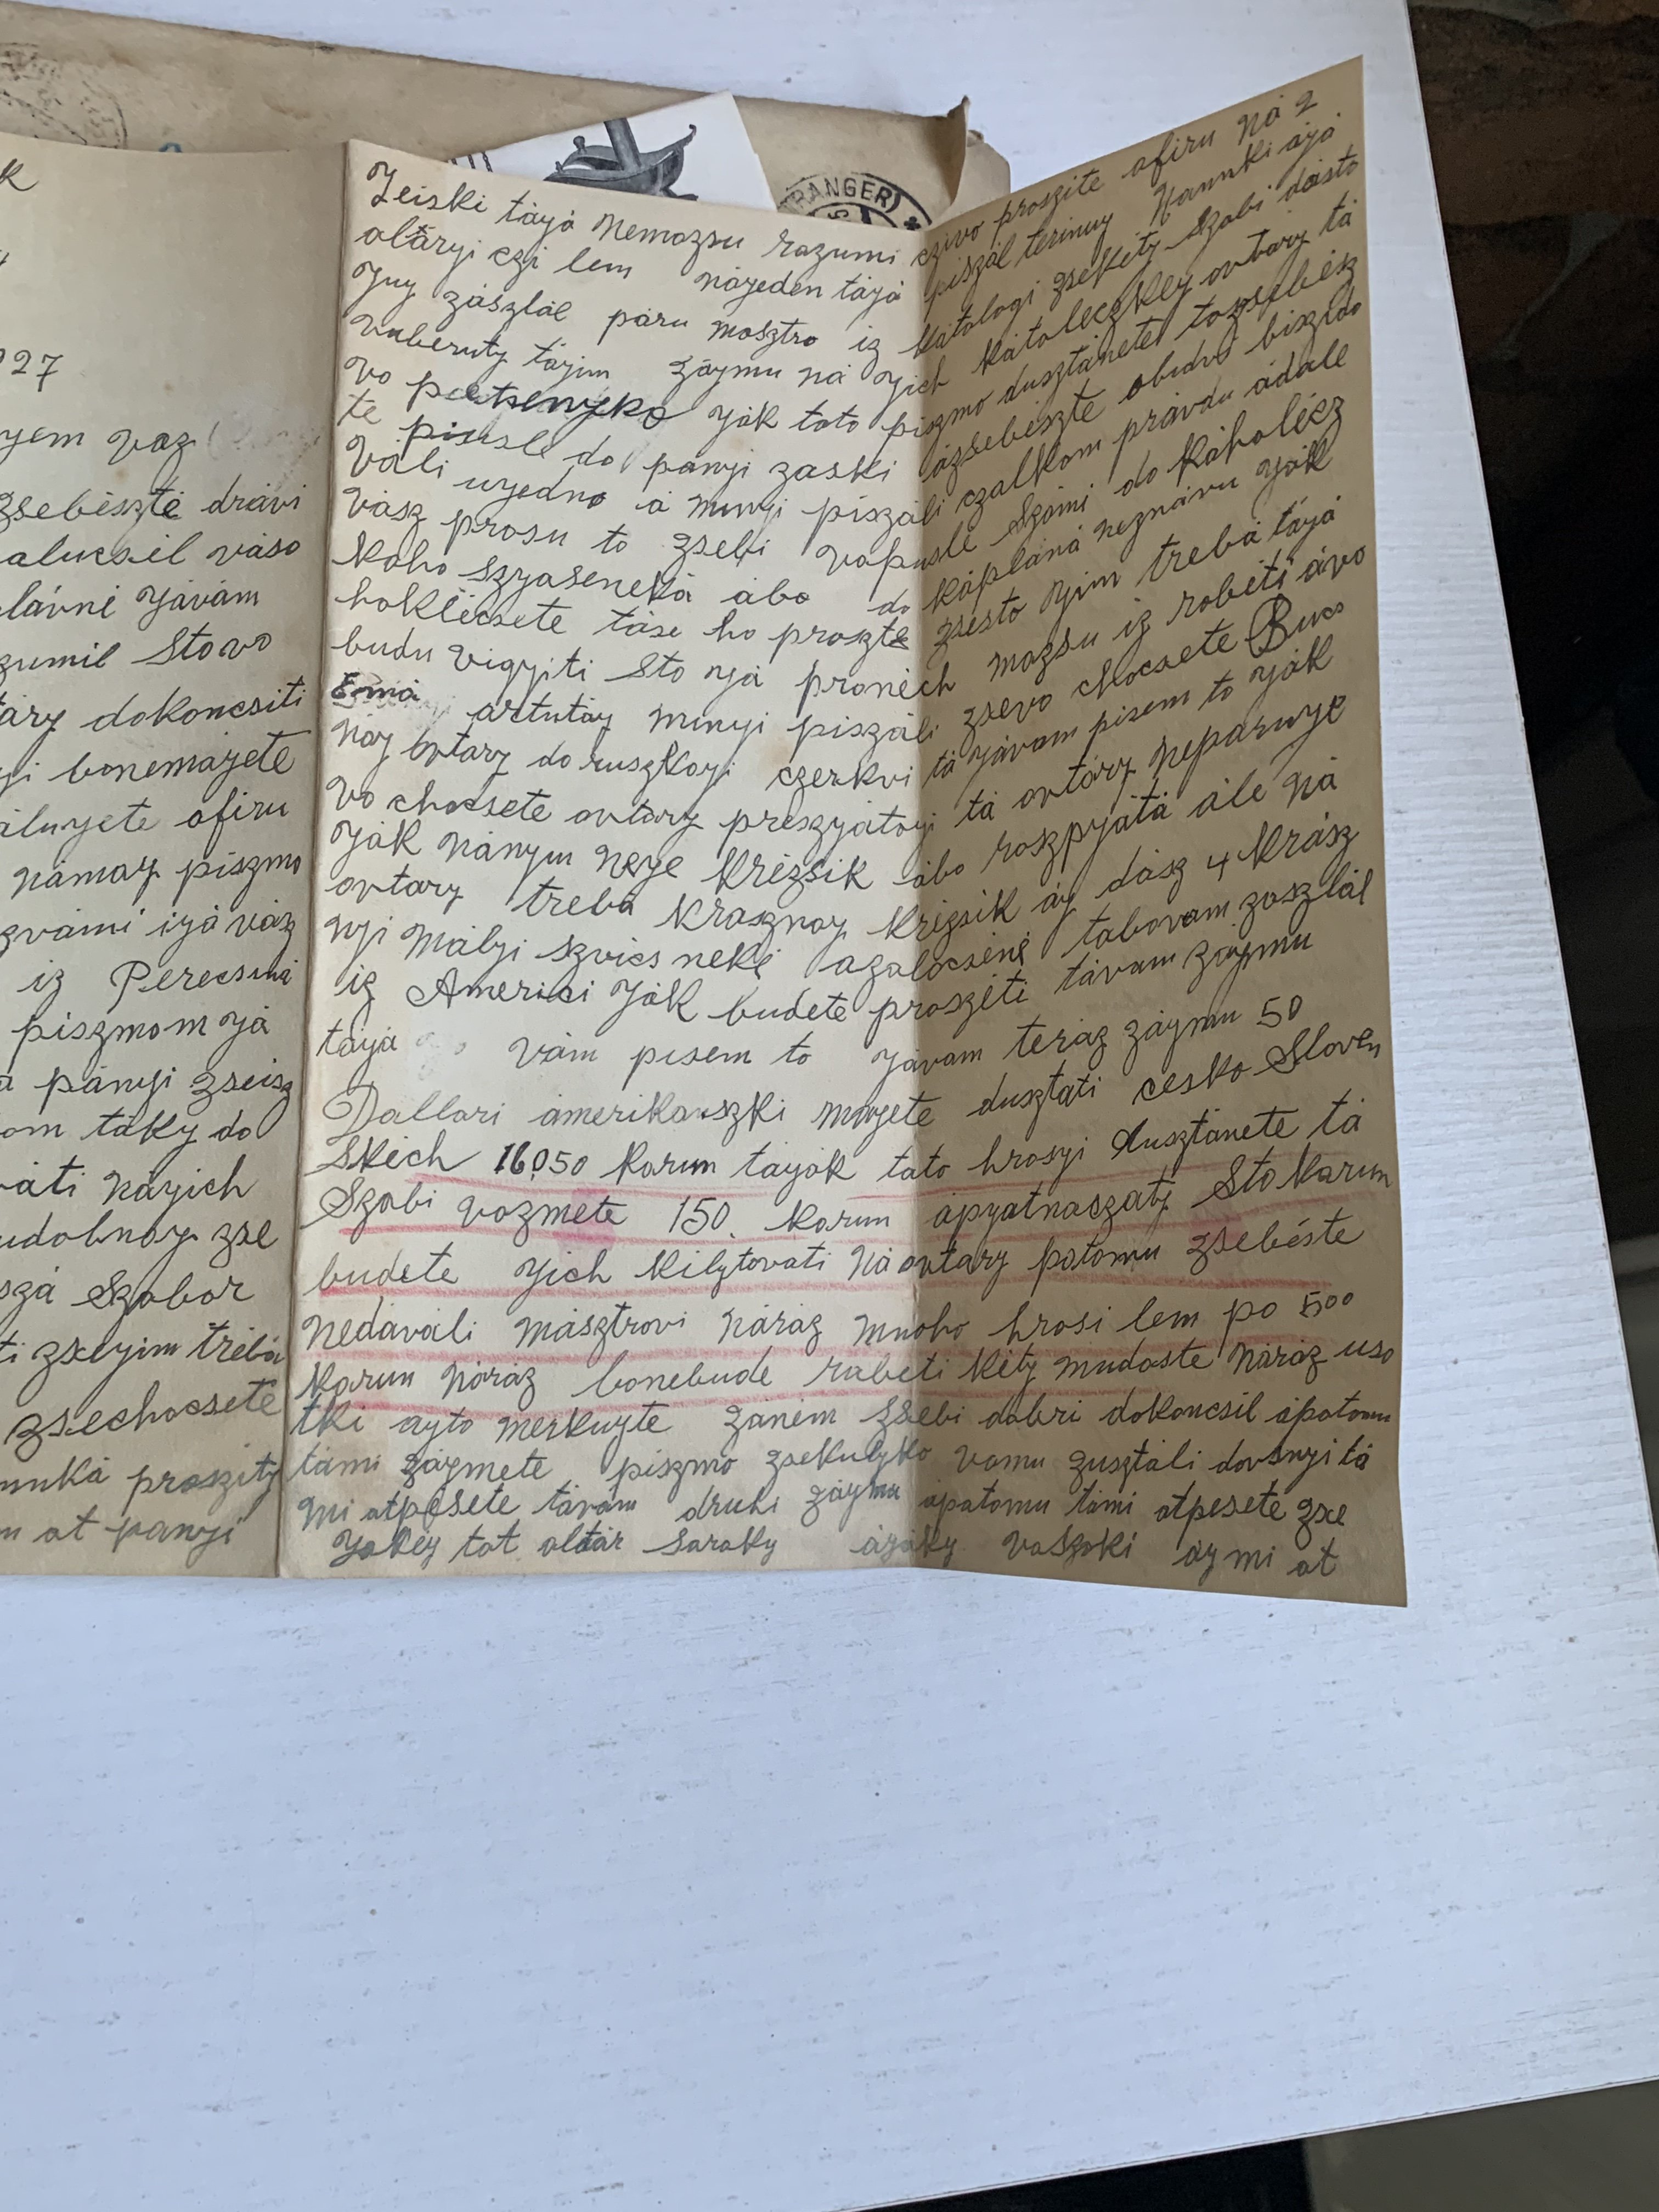 k
927
yem vaz
zsebészte drávi
alucsil váso
lávni Jávám
zumil Stovo
táry dokoncsiti
yi bonemájete
áluyete ofiru
námay piszmo
zvámi ijá váz
iz Perecsuná
piszmom já
a pányi zseisz
om táky do
váti náyich
udobnay zse
szá Szobor
ti zseyim trébá
zsechocsete
unká proszity
n at panyi
RANGER)
Zeiski tájá nemozsu razumi czivo proszite ofiru ná 2
oltáryi czi lem náyeden tájá piszál terinuy Hannki ájá
Juy zászlál páru mosztro iz Kátologi zsekity szobi dásto
vuberuty táyim záymu ná Jich Kátoleczkey ovtary tá
vo Ják toto piszmo dusztánete tozsebész
te pisusle do panyi zaski ázsebészte obudvi biszido
váli uyedno á munyi piszáli czalkom právdu ádále
vász prosu to zsebi vapusle számi do Káholécz
Koho szyasenekà abo do Káplàná neznávu Ják
hoklécsete táse ho proszte zsesto Jim trebá tájá
budu vigyiti sto Já pronéch mozsu iz robeti ávo
ártutáy munyi piszáli zsevo chocsete Buco
náy ovtary do ruszkoyi czerkvi tá Jávam pisem to Ják
vo chocsete ovtary preszyátoyi tá ovtáry nepárnye
Ják nányu neje Krézsik ábo roszpyátá ále ná
ovtary trebá krásznay Krézsik áy dász 4 Krász
nyi mályi szvicsneki azalocséné tabovam zoszlál
iz Americi Ják budete proszéti távam záymu
tájá vám pisem to Jávam teráz záymu 50
Dallari ámerikanszki muyete dusztáti cesko Sloven
Skéch 16.050 Korun táyák táto hrosyi dusztánete tá
Szobi vozmete 150. Korun ápyatnaszáty Sto Karun
budete Jich Kilytovati ná ovtary potomu zsebéste
nedaváli másztrovi náráz mnoho hrosi lem po 500
Karun náráz bonebude rabeti kéty mudaste náráz uso
tki ayto merkuyte zánem zsebi dobri dokoncsil ápotomu
támi záymete piszmo zsekulyko vamu zusztáli dovsnyi tá
mi atpésete távam druhi záymu ápatomu támi atpesete zse
Jakéy tot altár saroky ázáky voszoki áy mi at